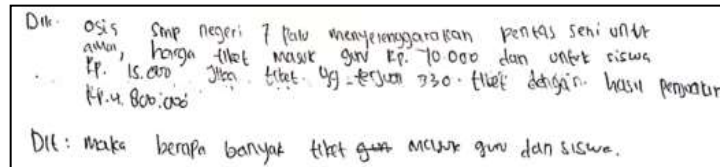 Dik: OSIS SMP negeri 7 Palu menyelenggarakan pentas seni untk
amal, harga tiket masuk guru Rp. 10.000 dan untuk siswa
Rp. 15.000 Jika tiket yg terjual 330 tiket dengan hasil penjualan
Rp.4.800.000
Dit: maka berapa banyak tiket masuk guru dan siswa.